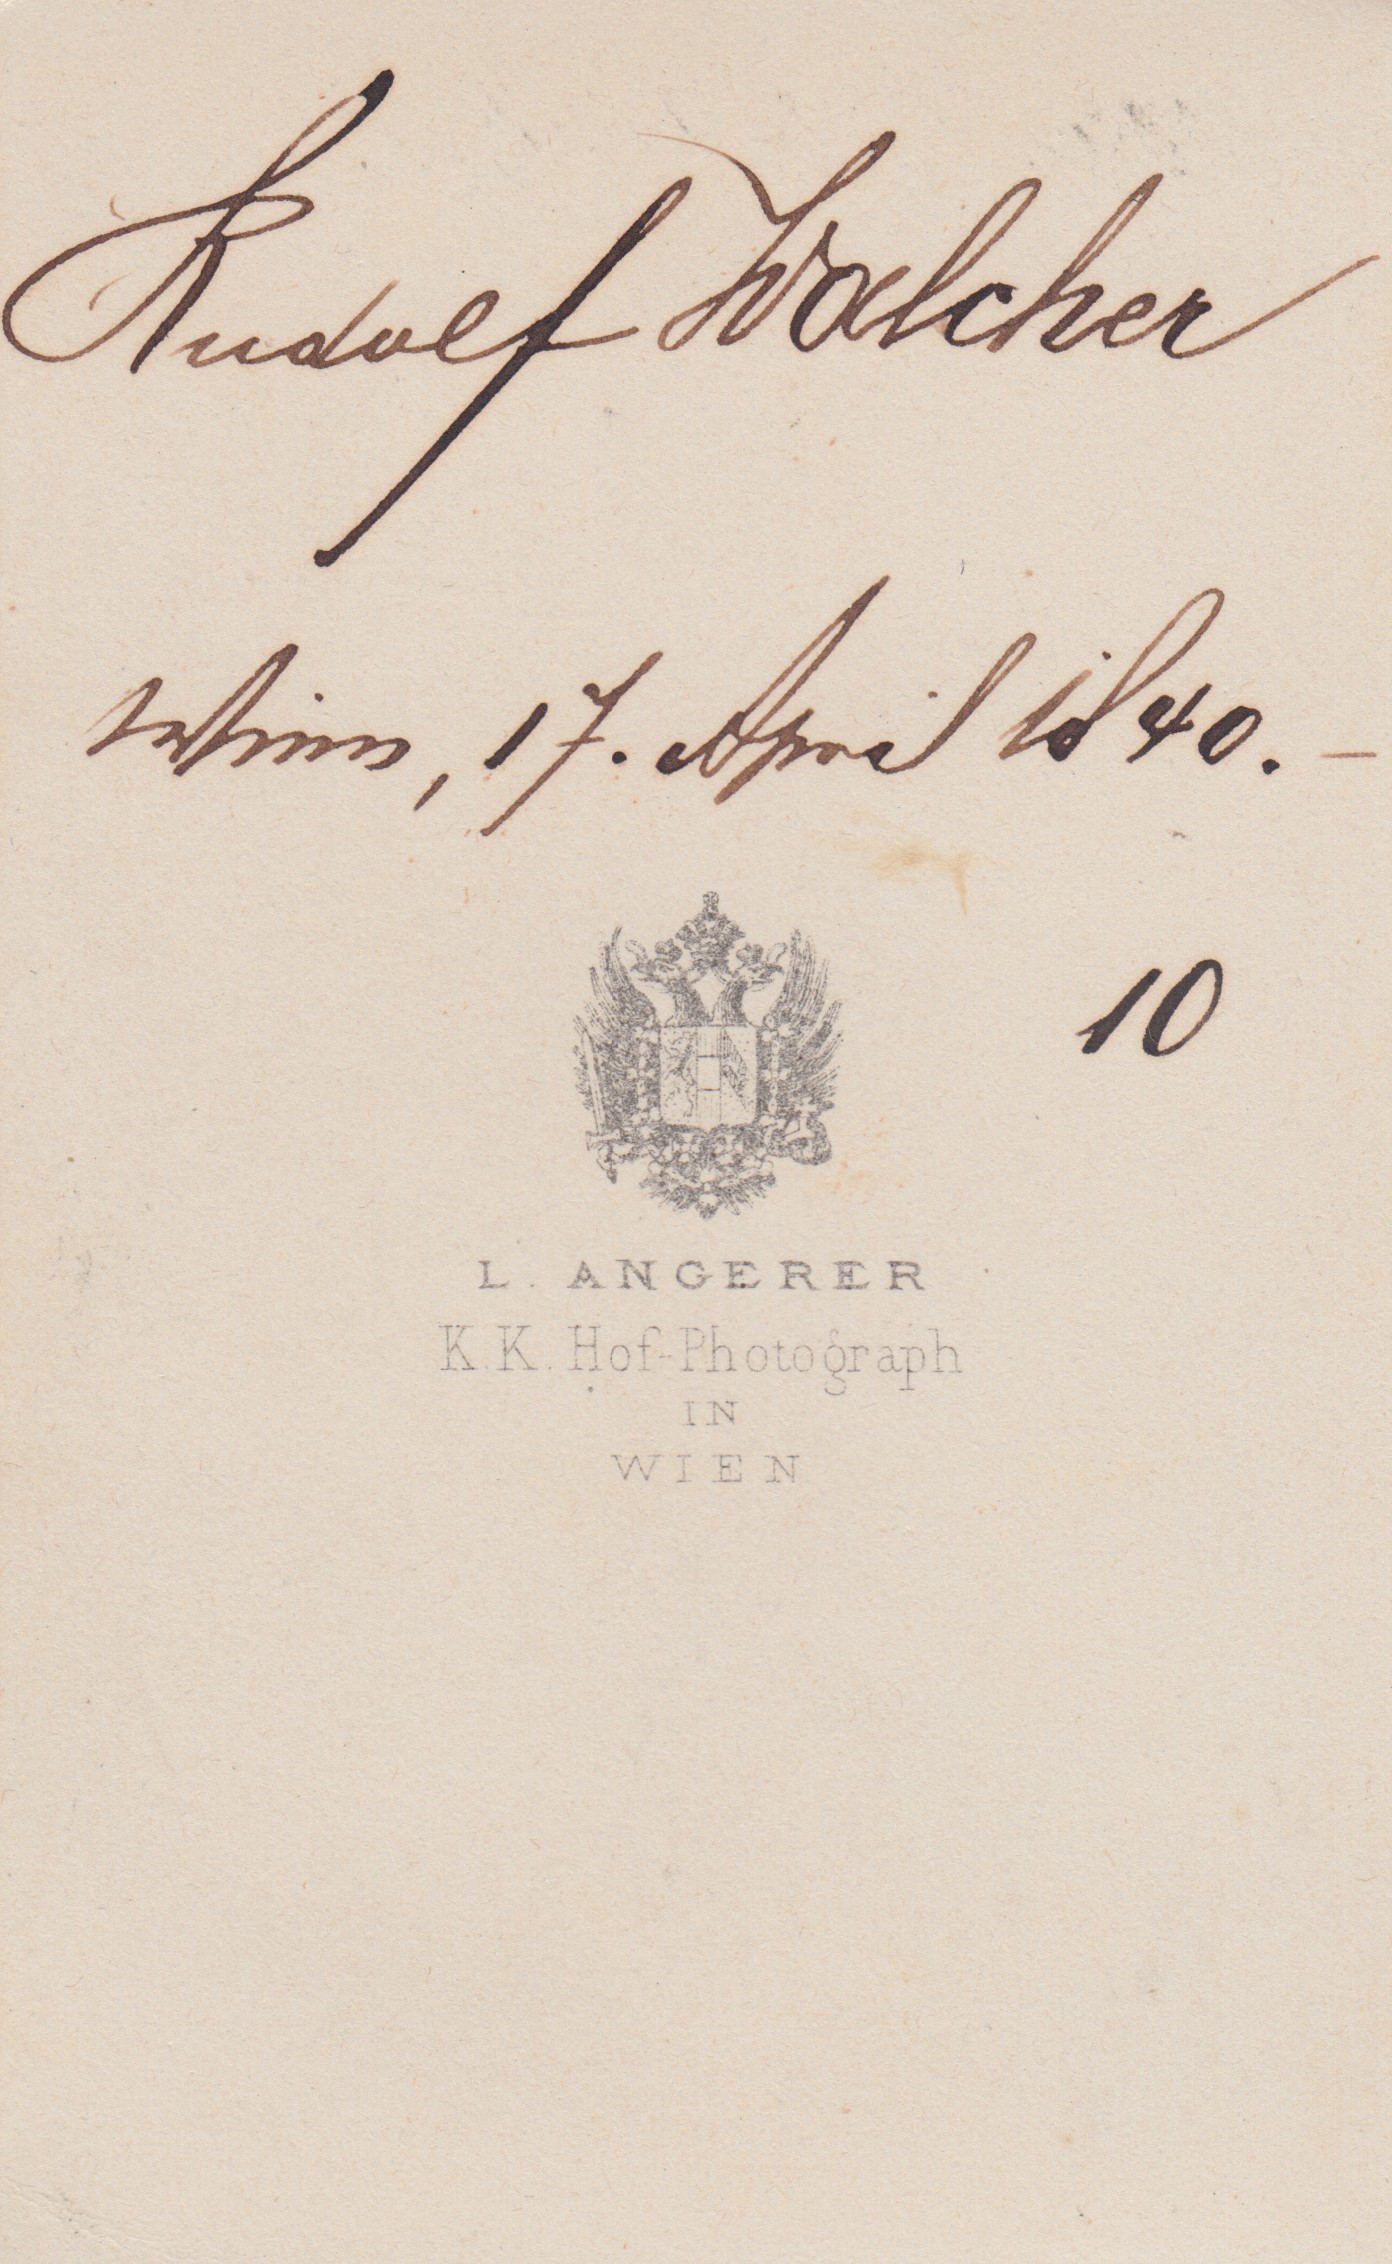 Rudolf Walcher
Wien, 17. April 1840. –
10
L. ANGERER
K. K. Hof-Photograph
IN
WIEN